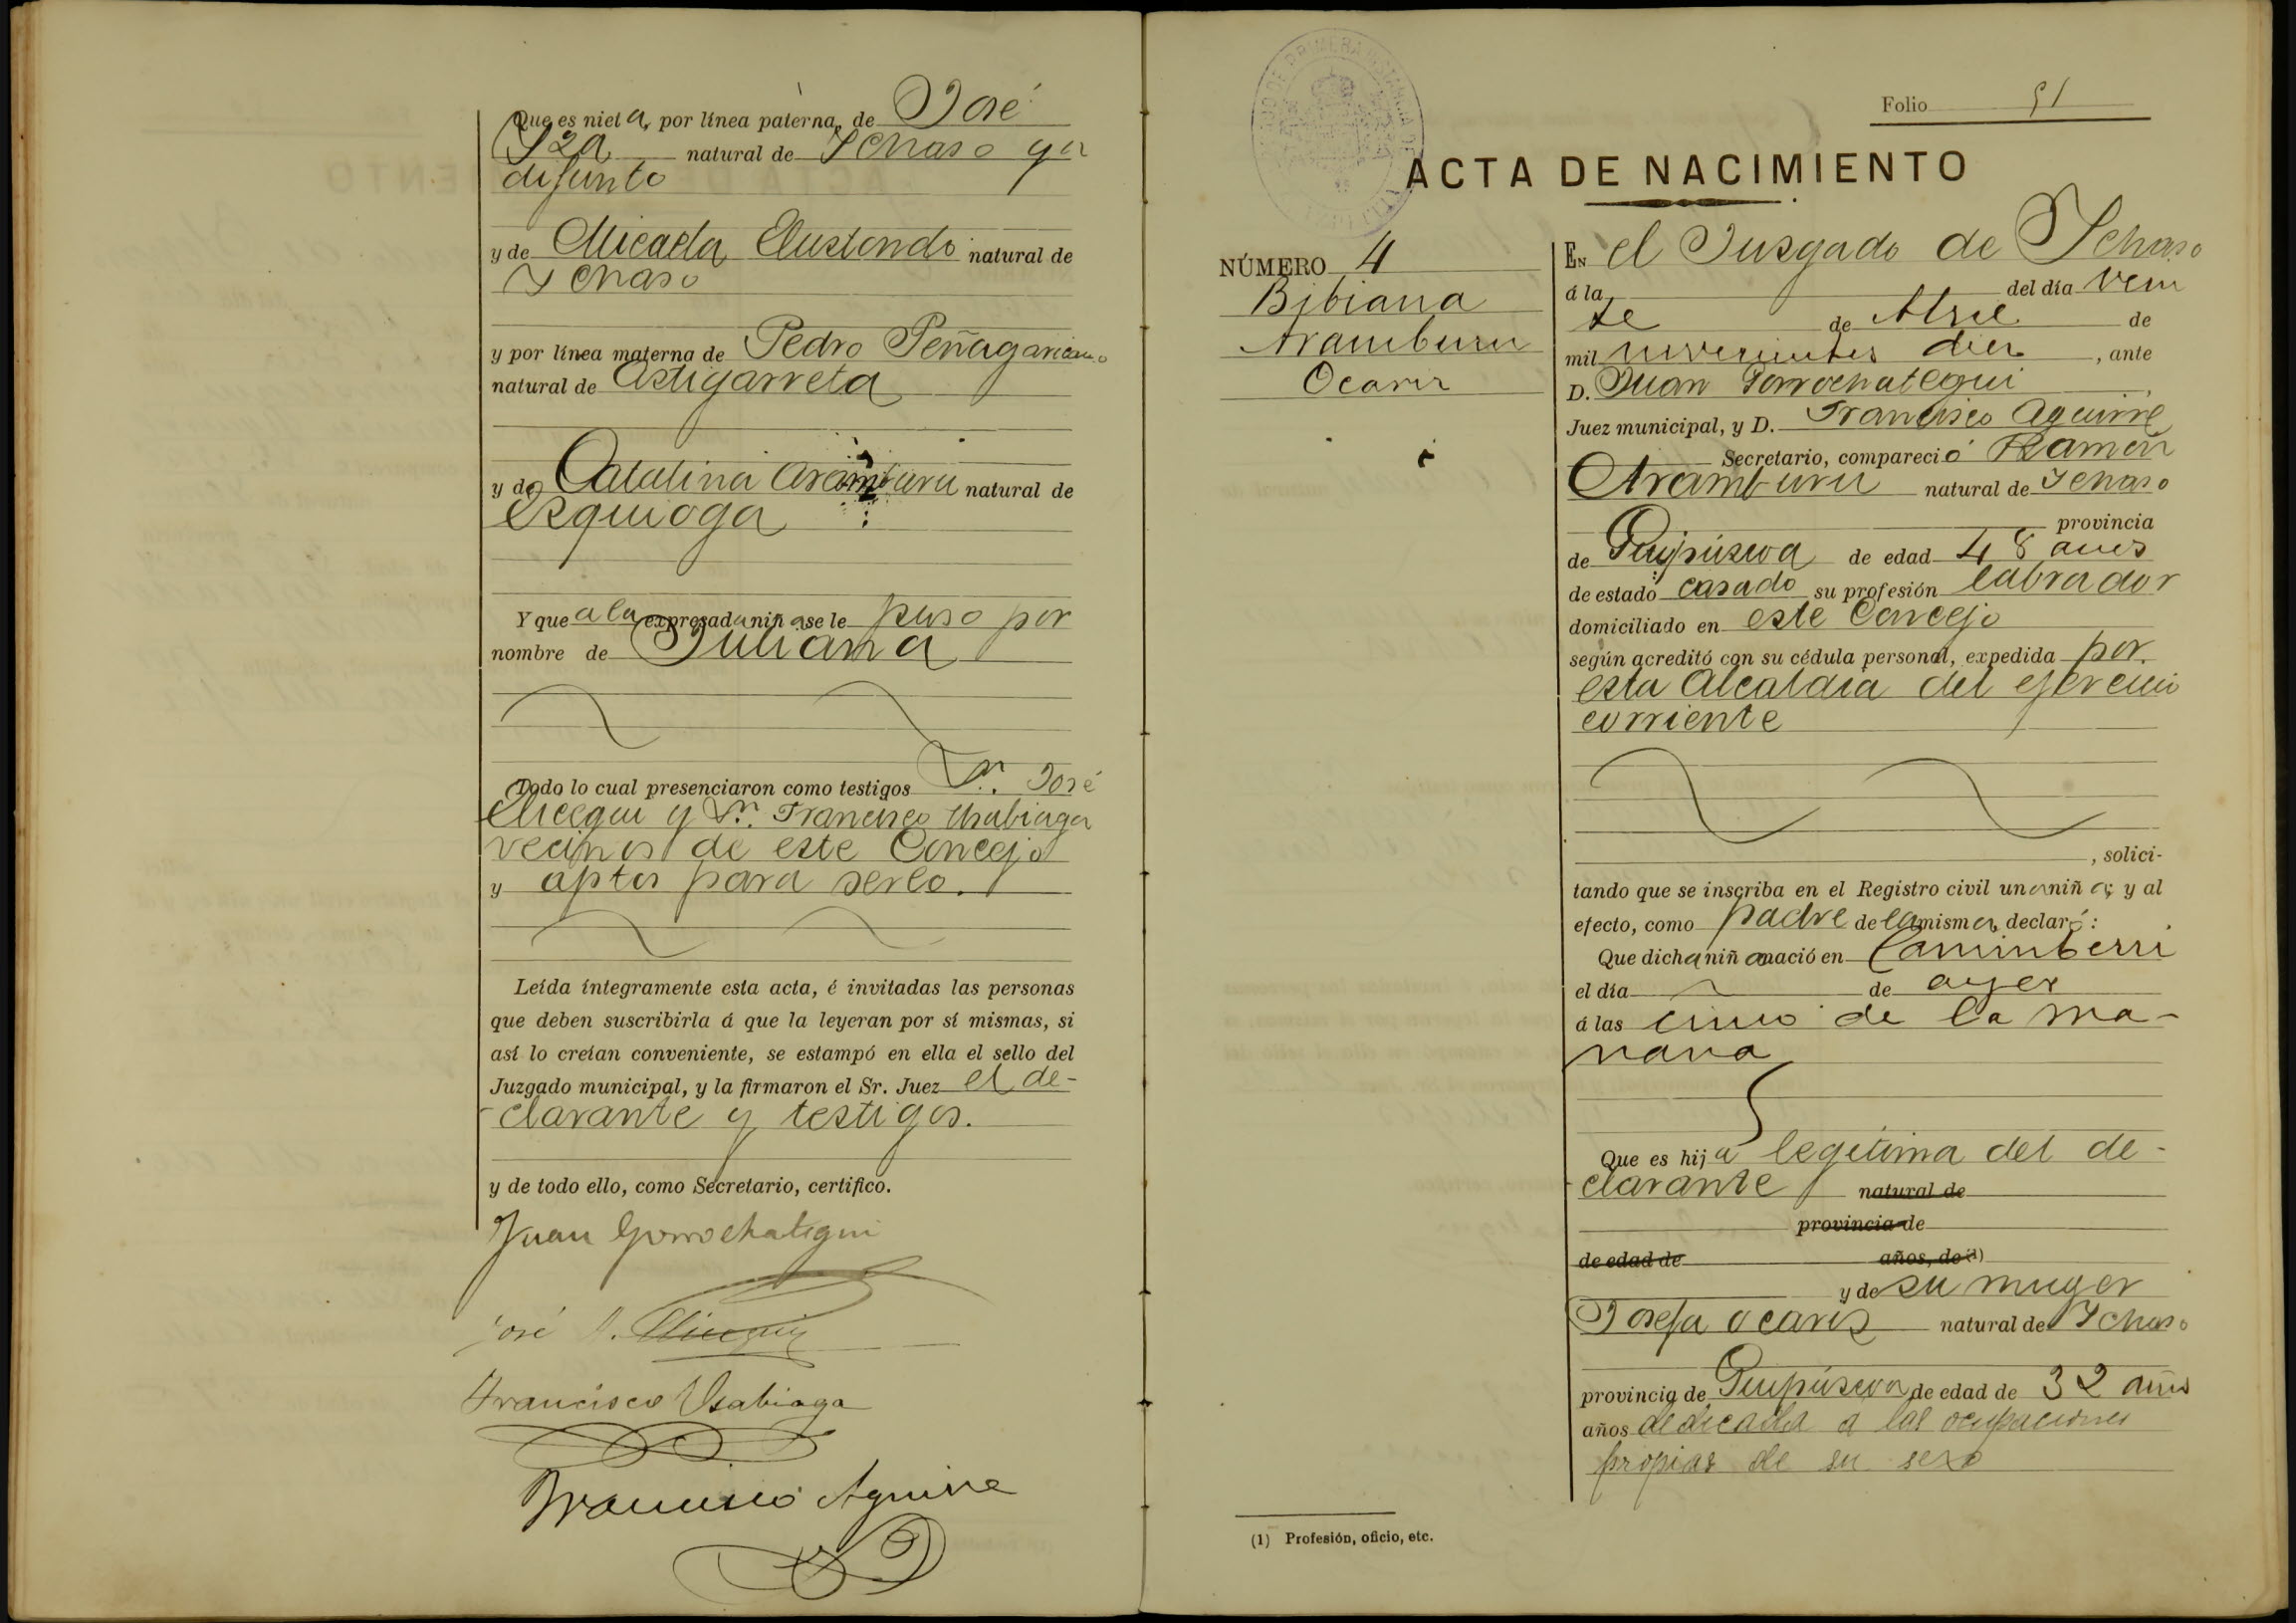 Que es nieta, por línea paterna, de José
Iza natural de Ichaso ya
difunto
y de Micaela Elustondo natural de
Ichaso
y por línea materna de Pedro Peñagaricano
natural de Astigarreta
y de Catalina Aramburu natural de
Ezquioga
Y que a la expresada niña se le puso por
nombre de Juliana
Todo lo cual presenciaron como testigos Dn. José
Elicegui y Dn. Francisco Usabiaga
vecinos de este Concejo
y aptos para serlo.
Leída íntegramente esta acta, é invitadas las personas
que deben suscribirla á que la leyeran por sí mismas, si
así lo creían conveniente, se estampó en ella el sello del
Juzgado municipal, y la firmaron el Sr. Juez el de-
clarante y testigos.
y de todo ello, como Secretario, certifico.
Juan Gorrochategui
José Elicegui
Francisco Usabiaga
Francisco Aguirre
Folio 91
ACTA DE NACIMIENTO
NÚMERO 4
Bibiana
Aramburu
Ocariz
EN el Jusgado de Ichaso
á la del día vein
te de Abril de
mil novecientos diez, ante
D. Juan Gorrochategui
Juez municipal, y D. Francisco Aguirre
Secretario, compareció Ramón
Aramburu natural de Ichaso
provincia
de Guipúscoa de edad 48 años
de estado casado su profesión labrador
domiciliado en este Concejo
según acreditó con su cédula personal, expedida por
esta Alcaldia del ejercicio
corriente
, solici-
tando que se inscriba en el Registro civil una niña; y al
efecto, como padre de la misma, declaró:
Que dicha niña nació en Caminberri
el día de ayer
á las cinco de la ma-
nana
Que es hija legitima del de-
clarante natural de
provincia de
de edad de años, de (1)
y de su muger
Josefa Ocariz natural de Ichaso
provincia de Guipúscoa de edad de 32 años
años dedicada a las ocupaciones
propias de su sexo
(1) Profesión, oficio, etc.